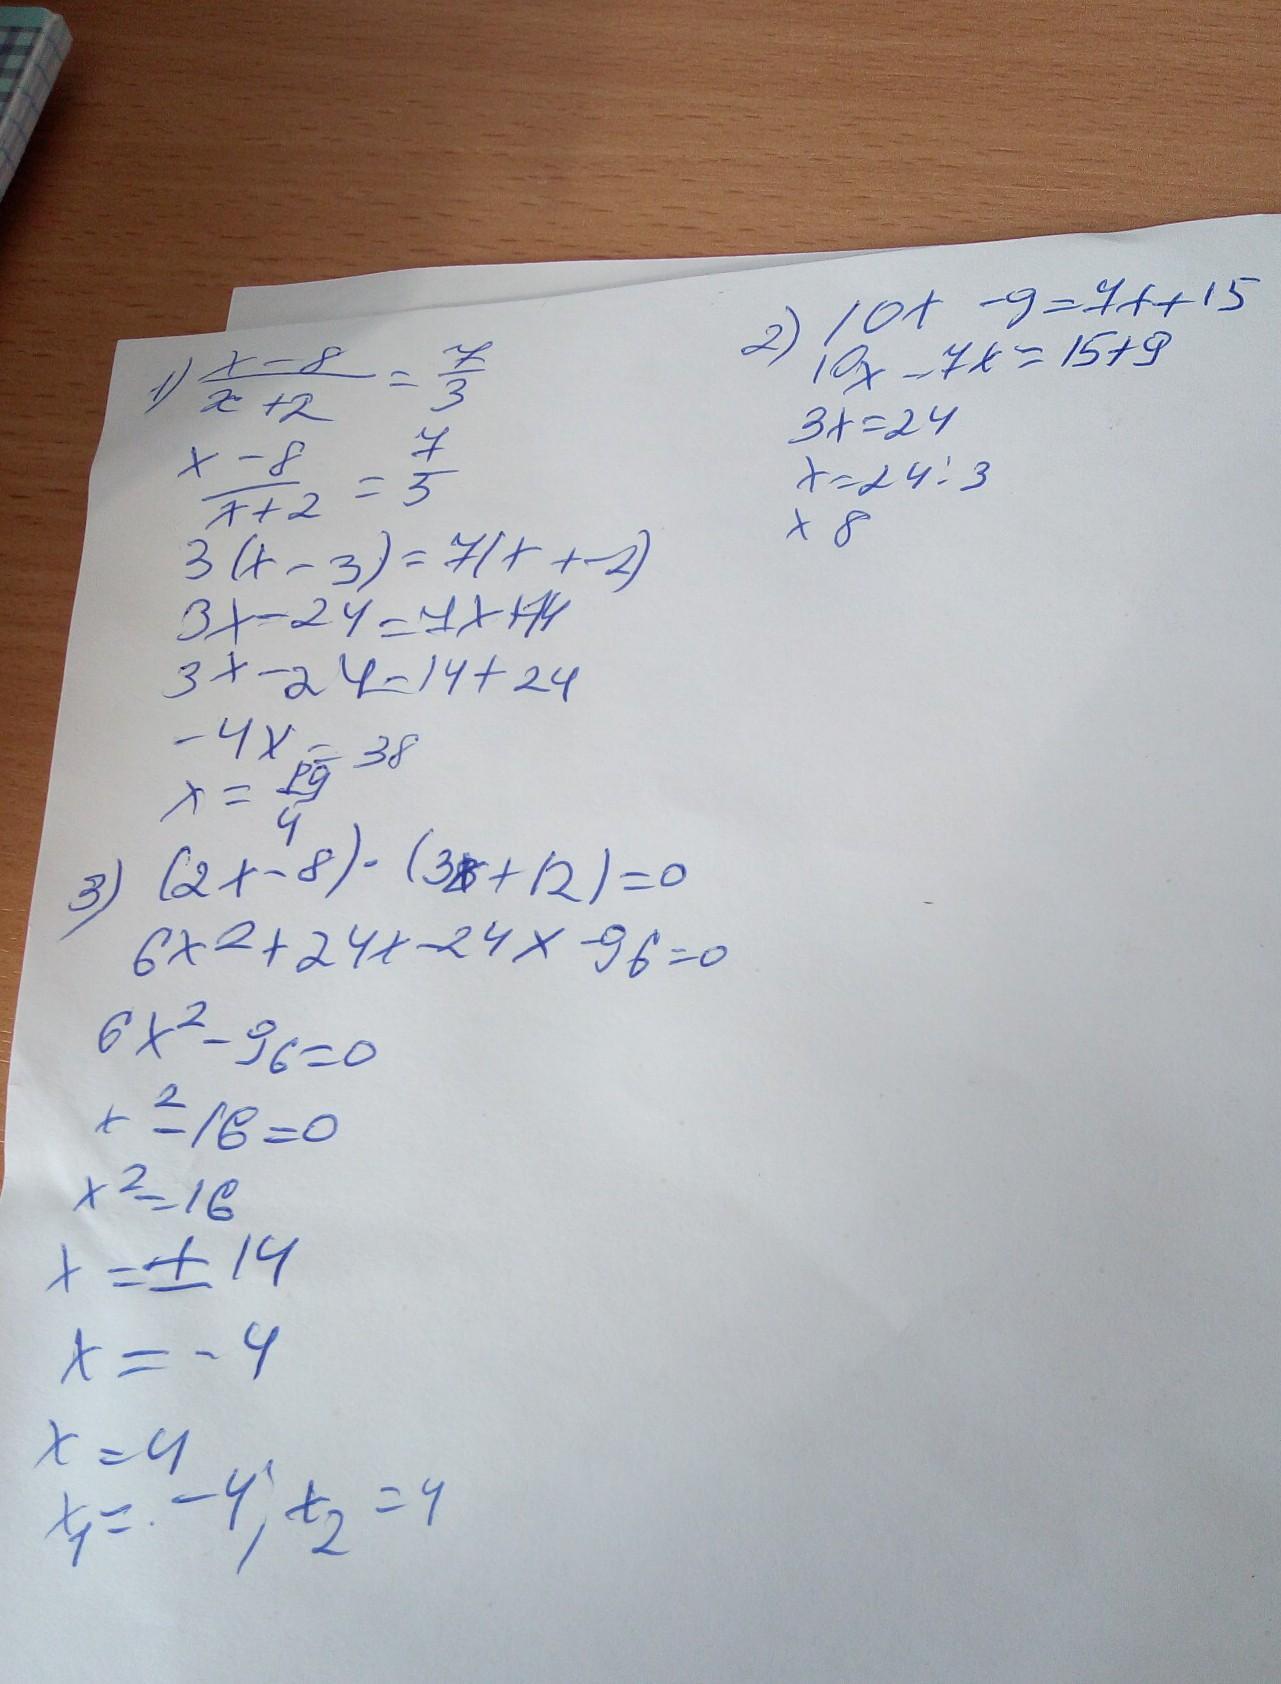 1) x-8/x+2 = 7/3
x-8/x+2 = 7/3
3(x-3)=7(x+-2)
3x-24=7x+14
3x-24=14+24
-4x=38
x=19/4
2) 10x-9=7x+15
10x-7x=15+9
3x=24
x=24:3
x 8
3) (2x-8)·(3x+12)=0
6x²+24x-24x-96=0
6x²-96=0
x²-16=0
x²=16
x=±14
x=-4
x=4
x₁=-4; x₂=4